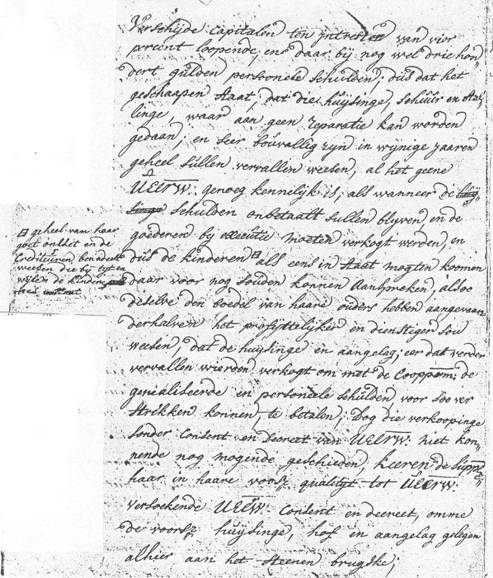 Verschijde Capitalen ten intresten van vier
percent loopende, en daar bij nog wel driehon
dert gulden personele schulden; dus dat het
geschaapen staat, dat die huijsinge, scheúer en stal
linge, waar aan geen reparatie kan worden
gedaan, en seer bouvallig zijn in wijnige jaaren
geheel sullen vervallen weesen, al het geene
UEErw: genoeg kennelijk is; als wanneer de
schulden onbetaalt sullen blijven, en de
goederen bij executie moeten verkogt werden, en
dus de kinderen als eens in staat mogten koomen
daar voor nog souden konnen aanspreken, alsoo
deselve den boedel van haare ouders hebben aangevaar
derhalven het profijttelijker en dienstiger sou
weesen dat de huijsinge en aangelag, eer dat verder
vervallen wierden, verkogt om met de Cooppenn: de
gerealiseerde en personele schulden voor soo ver
strekken konnen, te betalen; Dog die verkoopinge
sonder Consent en Decreet van UEErw: niet kon
nende nog mogende geschieden, keeren de supp:
haar in haare voorsz qualiteijt tot UEErw:
versoekende UEErw: Consent en decreet, omme
de voorsz huijsinge, hof en aangelag gelegen
alhier aan het steenen brugske;
geheel van haar
goet ontset en de
Crediteuren
weesen die bij
de kinderen